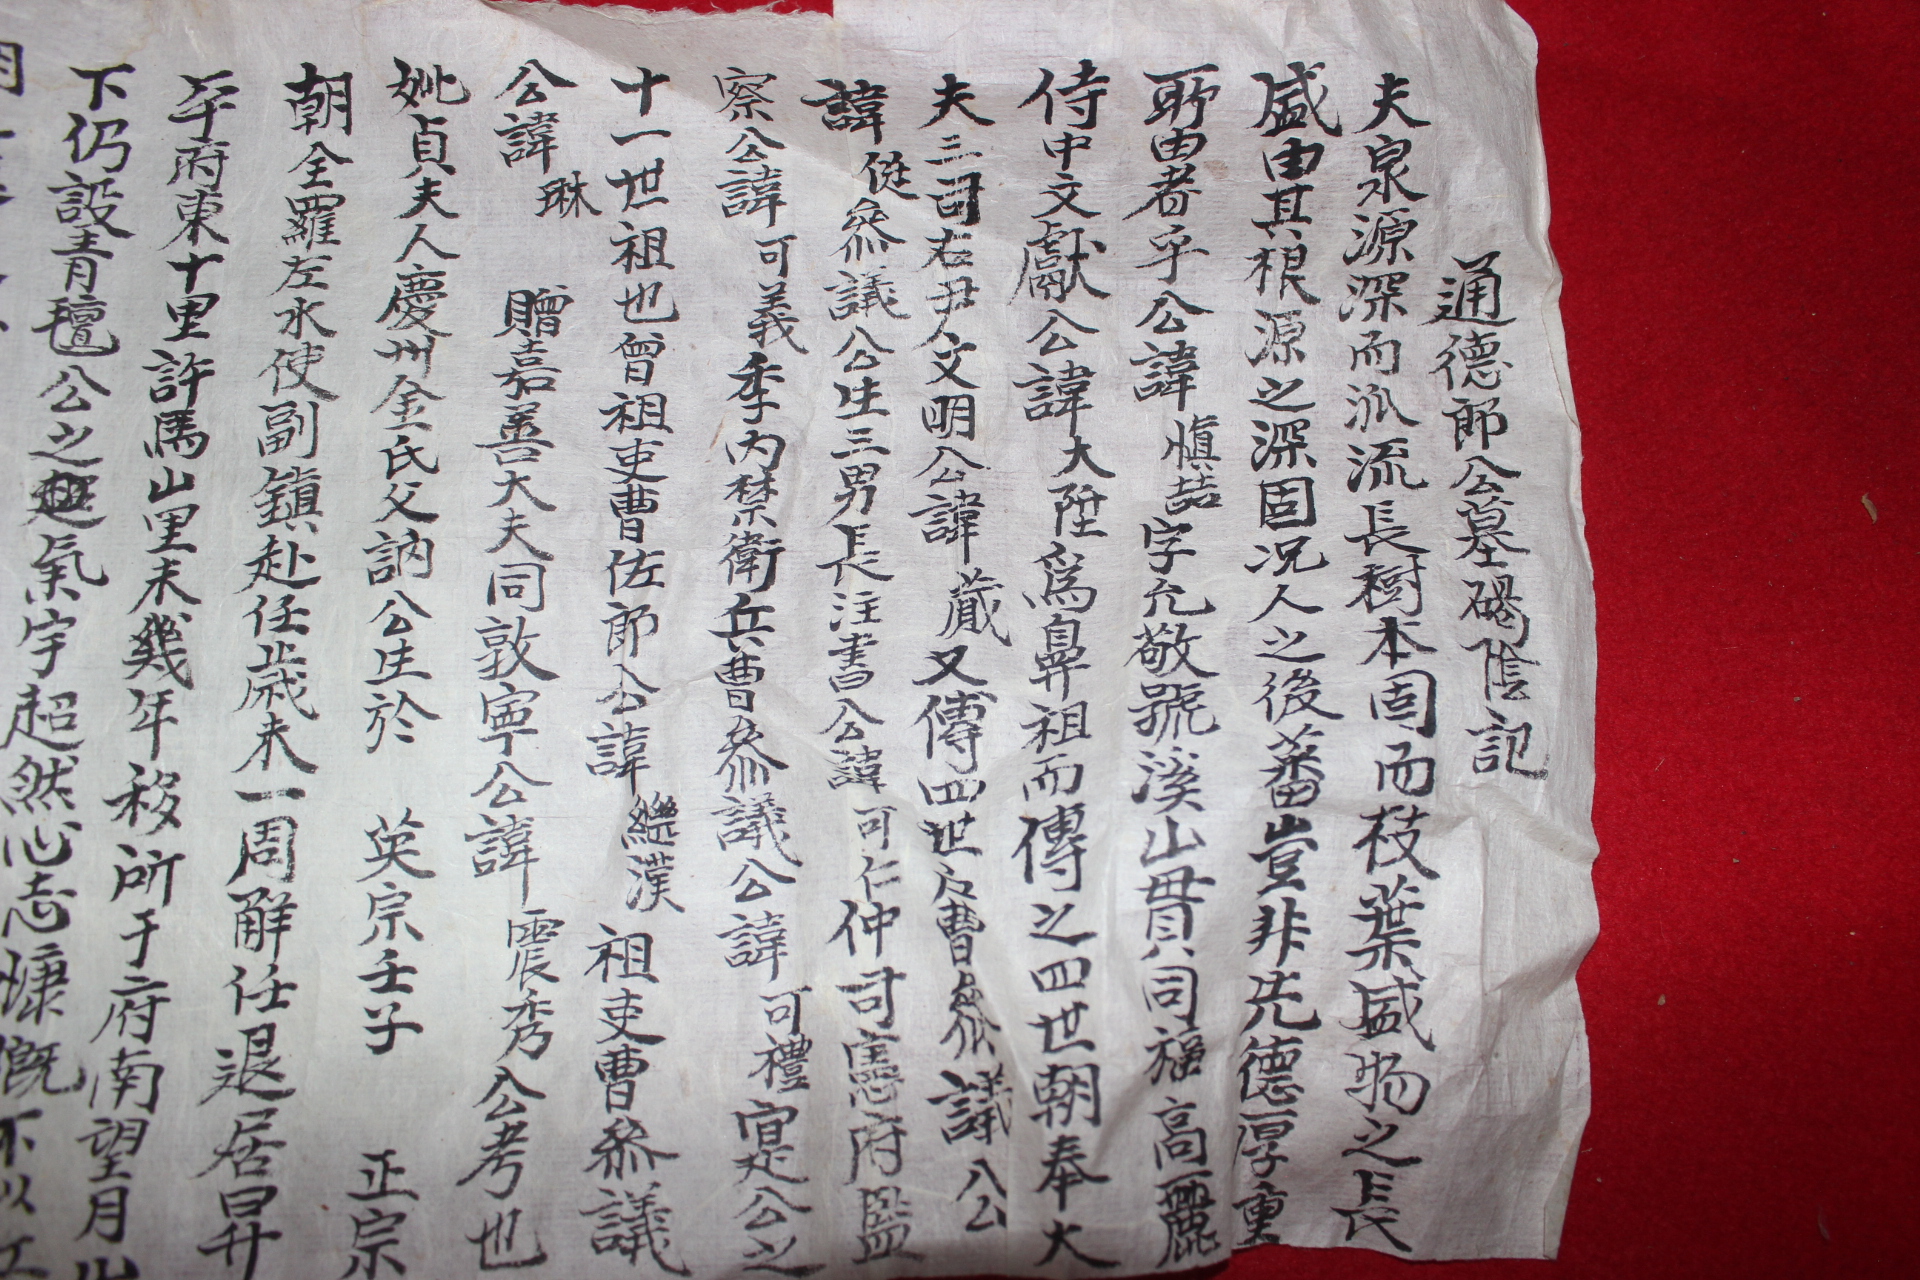 通德郎公墓碣陰記
夫泉源深而派流長樹本固而枝葉盛物之長
盛由其根源之深固况人之後蕃豈非先德厚重
所由者乎公諱愼喆字允敬號溪山貫同福高麗
侍中文獻公諱大陞爲鼻祖而傳之四世朝奉大
夫三司右尹文明公諱蕆又傳四世戶曹參議公
諱從參議公生三男長注書公諱可仁仲司憲府監
察公諱可義季內禁衛兵曹參議公諱可禮寔公之
十一世祖也曾祖吏曹佐郎公諱繼漢祖吏曹參議
公諱琳贈嘉善大夫同敦寧公諱震秀公考也
妣貞夫人慶州金氏父訥公生於英宗壬子正宗
朝全羅左水使副鎭赴任歲未一周解任退居昇
平府東十里許馬山里未幾年移所于府南望月山
下仍設靑氊公之氣宇超然心志慷慨不以